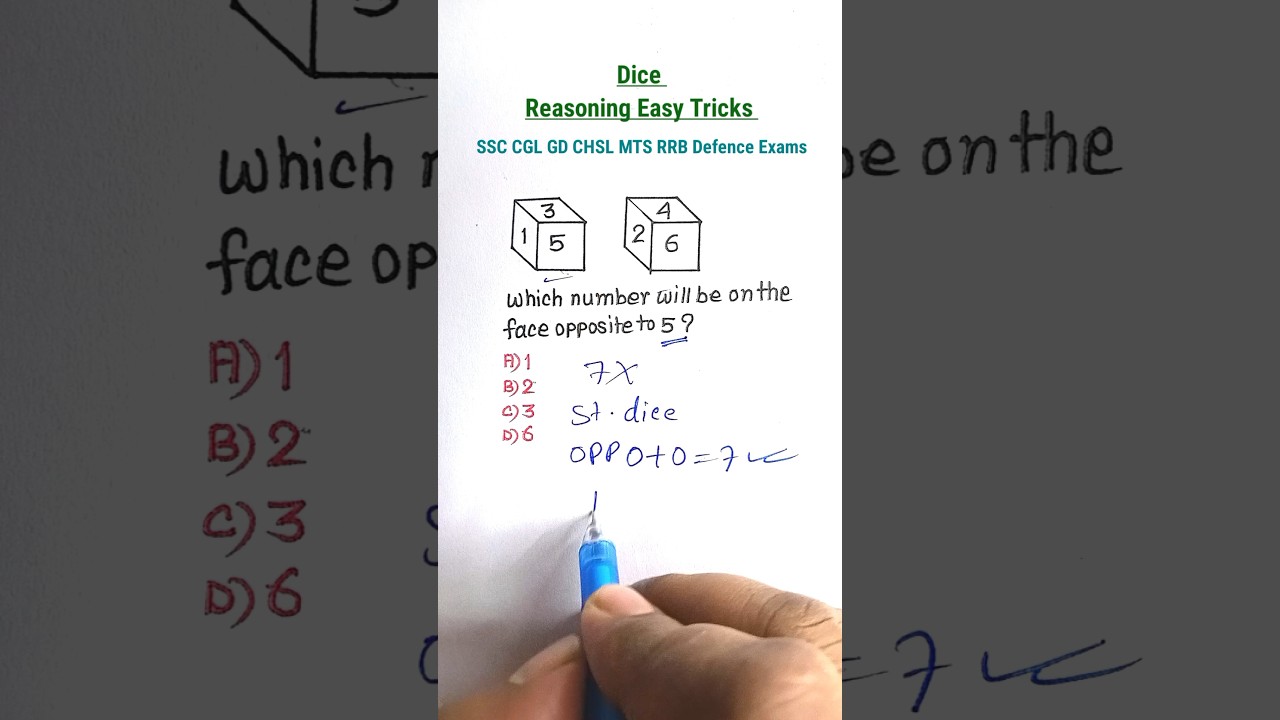 Dice
Reasoning Easy Tricks
SSC CGL GD CHSL MTS RRB Defence Exams
3
1 5
4
2 6
which number will be on the
face opposite to 5?
A) 1
B) 2
C) 3
D) 6
7X
St. dice
OPP O+O=7
which
be on the
face op
A) 1
B) 2
C) 3
D) 6
=7